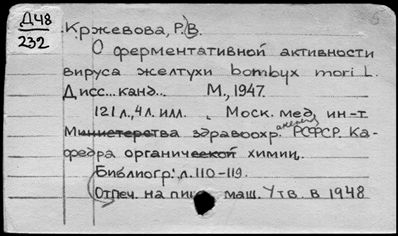 Д48
232
5
Кржевова, Р.В.
О ферментативной активности
вируса желтухи bombyx mori L.
Дисс... канд... М., 1947.
121 л., 4 л. илл. Моск. мед. ин-т
Министерства здравоохр. РСФСР. Ка-
федра органической химии.
Библиогр.: л. 110-119.
Отпеч. на пиш. маш. Утв. в 1948